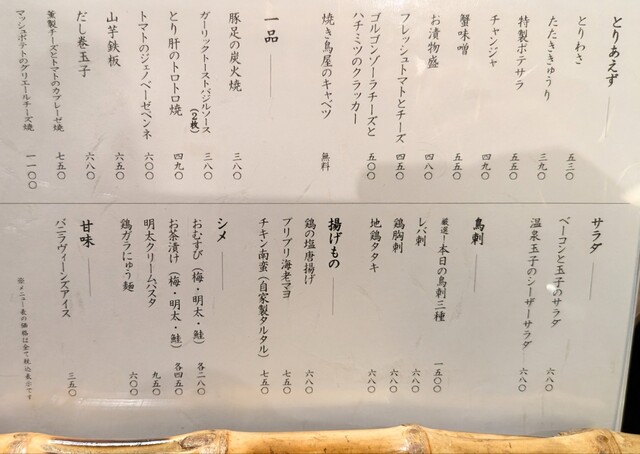 とりあえず
とりわさ 五三〇
たたききゅうり 三九〇
特製ポテサラ 五五〇
チャンジャ 四九〇
蟹味噌 五五〇
お漬物盛 四八〇
フレッシュトマトとチーズ 四五〇
ゴルゴンゾーラチーズと
ハチミツのクラッカー 五〇〇
焼き鳥屋のキャベツ 無料
一品
豚足の炭火焼 三八〇
ガーリックトーストバジルソース(2枚) 三八〇
とり肝のトロトロ焼 四九〇
トマトのジェノベーゼペンネ 六〇〇
山芋鉄板 六五〇
だし巻玉子 六八〇
薫製チーズとトマトのカプレーゼ焼 七五〇
マッシュポテトのグリエールチーズ焼 一一〇〇
サラダ
ベーコンと玉子のサラダ 六八〇
温泉玉子のシーザーサラダ 六八〇
鳥刺
厳選!本日の鳥刺三種 一五〇〇
レバ刺 六八〇
鶏胸刺 六八〇
地鶏タタキ 六八〇
揚げもの
鶏の塩唐揚げ 六八〇
プリプリ海老マヨ 七五〇
チキン南蛮(自家製タルタル) 七五〇
シメ
おむすび(梅・明太・鮭) 各二八〇
お茶漬け(梅・明太・鮭) 各四五〇
明太クリームパスタ 九五〇
鶏ガラにゅう麺 六〇〇
甘味
バニラヴィーンズアイス 三五〇
※メニュー表の価格は全て税込表示です